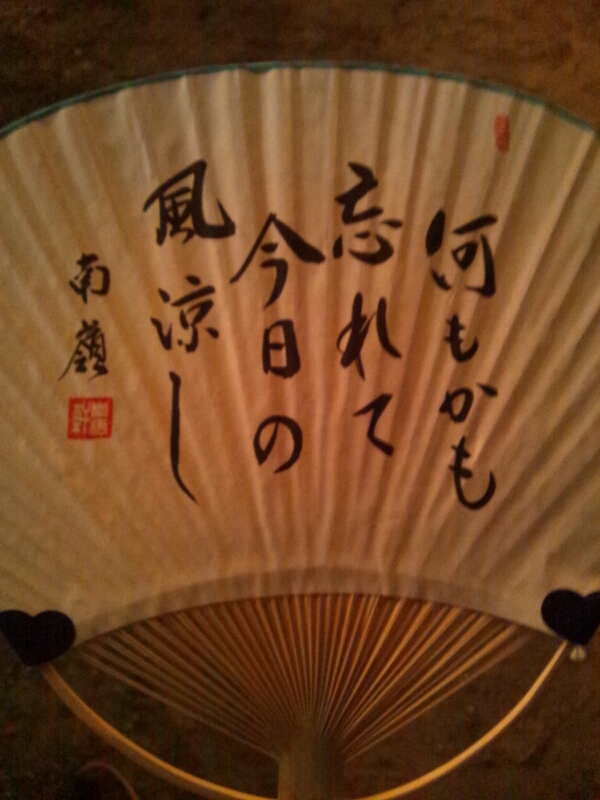 何もかも
忘れて
今日の
風涼し
南嶺